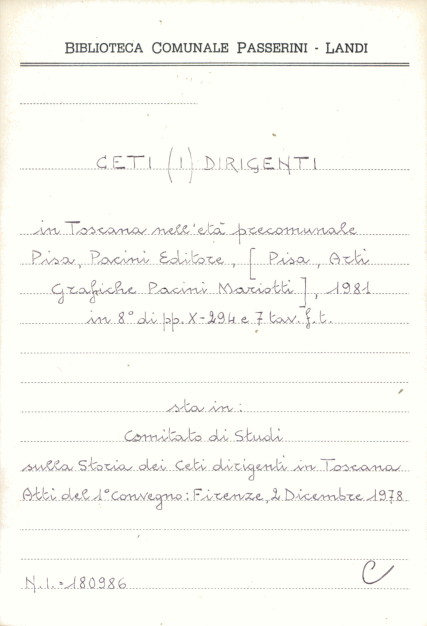 BIBLIOTECA COMUNALE PASSERINI - LANDI
CETI (I) DIRIGENTI
in Toscana nell'età precomunale
Pisa, Pacini Editore, [Pisa, Arti
Grafiche Pacini Mariotti], 1981
in 8° di pp. X-294 e 7 tav. f. t.
sta in:
Comitato di Studi
sulla Storia dei Ceti dirigenti in Toscana
Atti del 1° Convegno: Firenze, 2 Dicembre 1978
N. I. = 180986
C